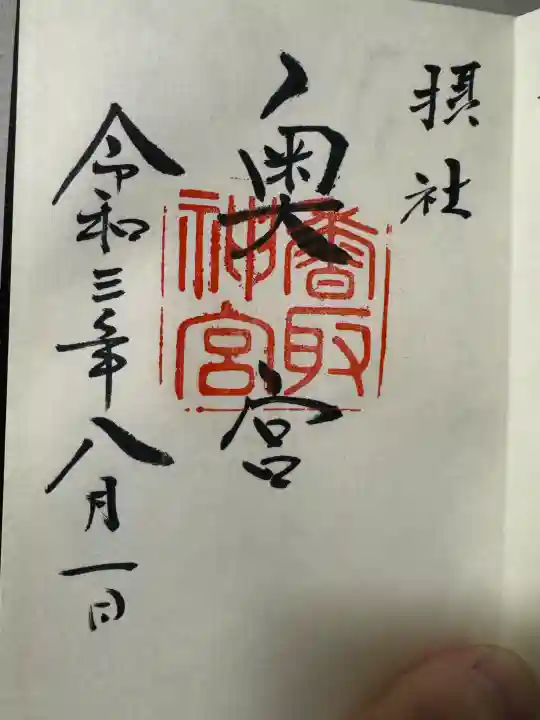 摂社
奥宮
香取
神宮
令和三年八月一日